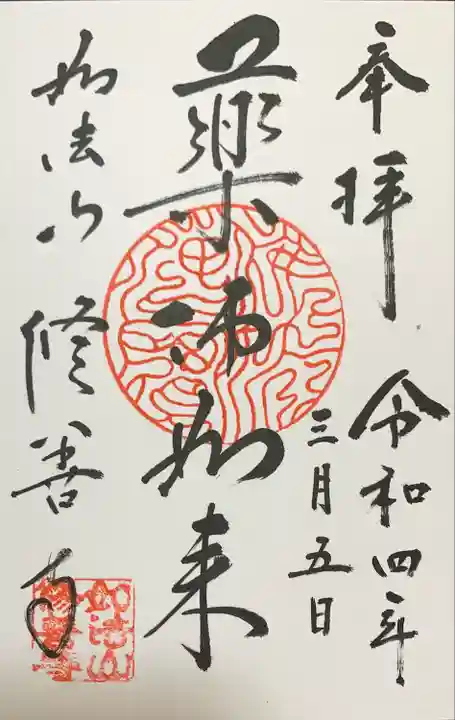 奉拝
令和四年
三月五日
薬師如来
如法山 修善寺